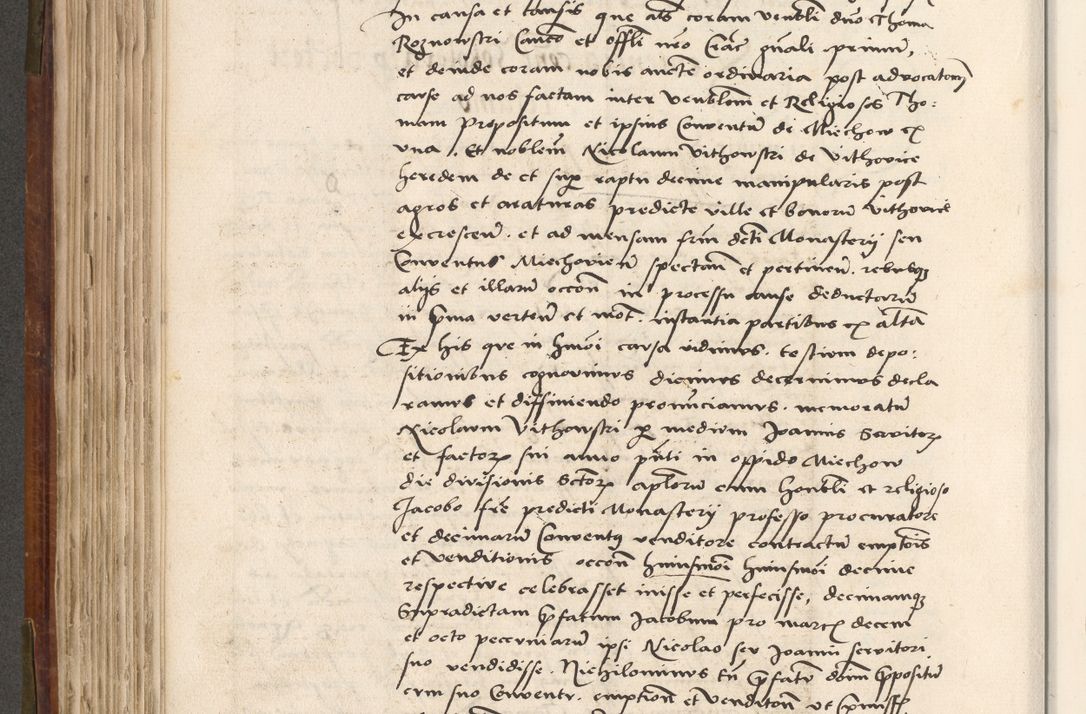 In causa et causis que als coram venbli dno Thoma
Roznowski Canco et offli nro Crac gnali primum,
et deinde coram nobis aucte ordinaria post advocatom
cause ad nos factam inter Venblem et Religiosos Tho:
mam Prepositum et ipsius Conventu de Miechow ex
una. Et noblem Nicolaum Vithowski de Vithovice
heredem de et sup raptu decime manipularis post
agros et araturas predicte ville et bonoru Vithovice
excrescen. et ad mensam frm dcti Monasterij seu
Conventus Miechovien spectan et pertinen. rebusq
alijs et illaru occon in processu cause deductoru
in prima verten et mot. instantia partibus ex alta
Ex his que in hmoi causa vidimus. testium depo:
sitionibus cognovimus dicimus decernimus decla
ramus et diffiniendo pronunciamus. memoratu
Nicolaum Vithowski p medium Joannis Servitor
et factor sui anno pnti in oppido Miechow
die divisionis Sctor aploru cum honbli et religioso
Jacobo fre predicti Monasterij professo procuratore
et decimaru Conventus venditore contractu emptois
et venditionis occon huiusmoi huiusmoi decime
respective celebrasset inisse et perfecisse, decimamq
Supradictam prfatum Jacobum pro marcis decem
et octo pecuniaru ipsi Nicolao seu Joanni servitori
suo vendidisse. Nichilominus tn prfatu dnm prpositu
cum suo Conventu. emption et venditon ut prmiss